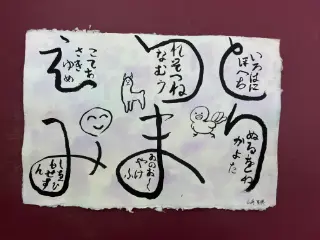 と
いろはに
ほへち
り
ぬるをわ
かよた
ら
れそつね
なむう
ま
ゐのおく
やけ
ふ
え
こてあ
さき
ゆめ
み
しゑひ
もせす
ん